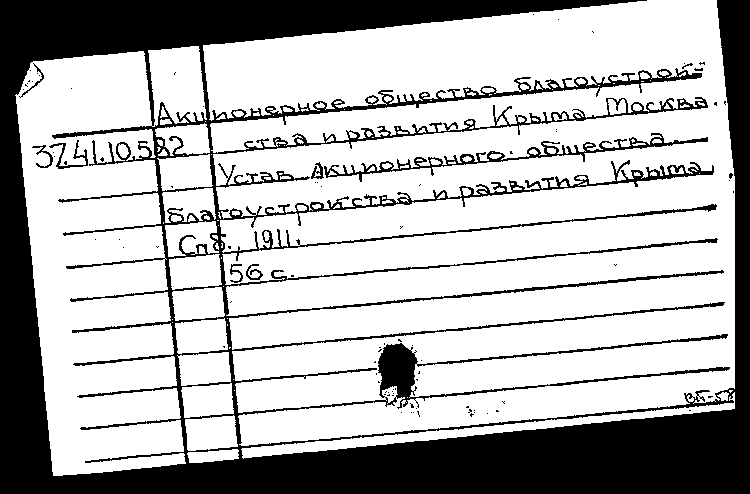 Акционерное общество благоустрой-
37.41.10.582 ства и развития Крыма. Москва.
Устав Акционерного общества
благоустройства и развития Крыма.
Спб., 1911.
56 с.
ВБ-58